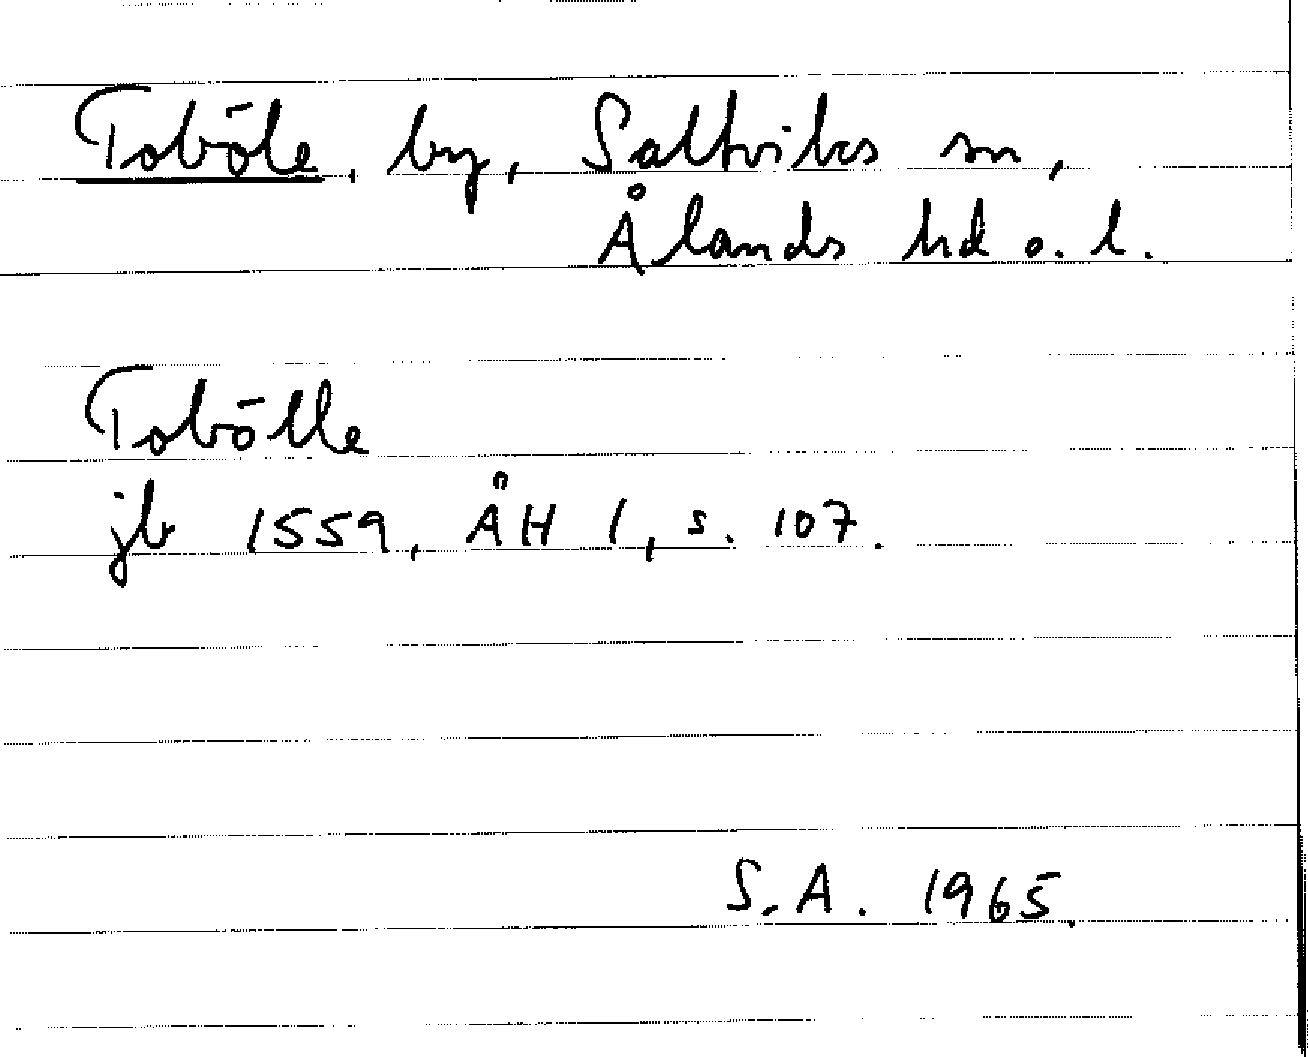 Toböle, by, Saltviks sn,
Ålands hd o. l.
Tobölle
jb 1559, ÅH 1, s. 107.
S.A. 1965.